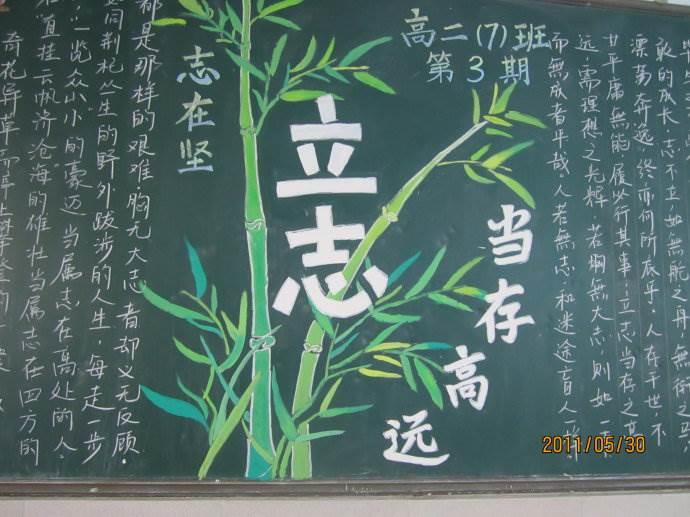 高二(7)班
第3期
志在坚
立志
当存高远
直挂云帆济沧海的雄壮当属志在四方的
一览众小小"的豪迈当属志在高处的人.
同荆杞丛生的野外跋涉的人生,每走一步
都是那样的艰难.胸无大志者却义无反顾.
永的成长,志不立如無舵之舟,無衔之马
漂荡奔逸,终亦何所底乎,人存于世不
甘平庸無能,履必行其事,立志当存之高
远,需理想之光辉,若胸無大志,则如一事
而無成者乎哉人若無志,和迷途盲人一样
2011/05/30